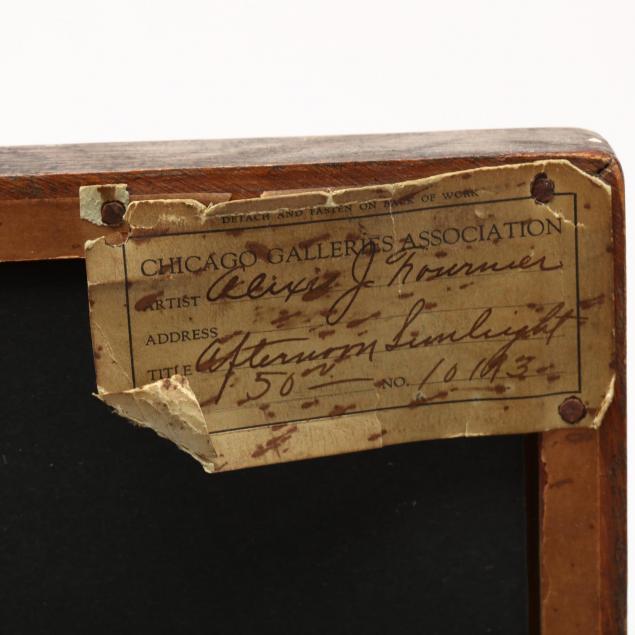 DETACH AND FASTEN ON BACK OF WORK
CHICAGO GALLERIES ASSOCIATION
ARTIST Alexis J Fournier
ADDRESS
TITLE Afternoon Sunlight
150 NO. 10113